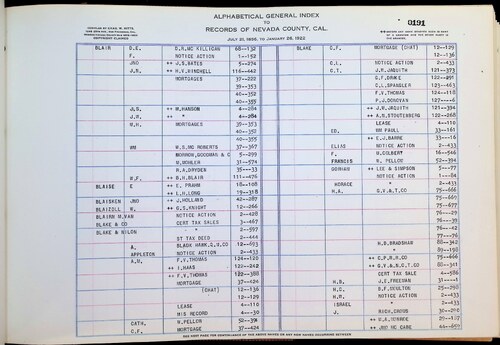 ALPHABETICAL GENERAL INDEX
TO
RECORDS OF NEVADA COUNTY, CAL.
JULY 21, 1856, TO JANUARY 26, 1922
0191
BLAIR D.E. D.R. MC KILLIGAN 68—132
F. NOTICE ACTION 1—152
JNO ++ J.S. BATES 5—274
J.R. ++ H.V. HINDWELL 116—442
MORTGAGES 37—222
39—353
40—352
40—355
J.S. ++ W. HANSON 4—284
J.R. ++ " 4—284
W.H. MORTGAGES 39—353
40—352
40—355
WM W.S. MC ROBERTS 37—367
MORROW, GOODMAN & C 5—299
U. MOHLER 31—574
R.A. DRYDEN 35—33
W.F. ++ B.H. BLAIR 111—476
BLAISE E ++ E. PRAHM 18—108
++ L.H. LONG 19—318
BLAISKEN JNO ++ J. HOLLAND 42—287
BLAIZELL W. ++ G.S. KNIGHT 12—266
BLAIRN M. VAN NOTICE ACTION 2—428
BLAKE & CO CERT TAX SALES 3—467
BLAKE & NILON " 2—597
ST TAX DEED 2—444
A. BLACK HAWK, Q.M.CO 12—693
APPLETON NOTICE ACTION 2—433
A.N. F.V. THOMAS 124—120
++ I. HAAS 122—242
++ F.V. THOMAS 122—388
MORTGAGE 37—424
(CHAT) 12—136
12—129
LEASE 4—110
MIS RECORD 4—30
CATH. N. PELLON 52—394
C.F. MORTGAGE 37—424
BLAKE C.F. MORTGAGE (CHAT) 12—129
12—136
C.L. NOTICE ACTION 2—433
C.T. J.R. JAQUITH 121—373
G.F. DRAKE 122—291
C.L. SPANGLER 123—463
F.V. THOMAS 124—118
P.J. DONOVAN 127—6
++ J.W. JAQUITH 121—394
++ A.W. STOUTENBERG 122—268
LEASE 4—110
ED. WM PAULL 33—161
++ E.J. BARRE 33—16
ELIAS NOTICE ACTION 2—433
F. U. COLBERT 16—546
FRANCIS N. PELLON 52—394
GORHAM ++ LEE & SIMPSON 5—77
NOTICE ACTION 1—84
HORACE " 2—433
H.A. G.V.&T.CO 75—666
75—669
75—677
76—29
76—30
76—42
77—75
77—76
H.D. BRADSHAW 88—342
" 89—198
++ C.P.R.R.CO 75—666
++ G.V.&N.C.T.CO 88—341
CERT TAX SALE 4—586
H.B. J.E. FREEMAN 31—1
H.C. D.F. MOULTON 25—250
H.R. NOTICE ACTION 2—433
ISRAEL " 2—433
J. RICH, CROSS 30—210
++ JNO MC CABE